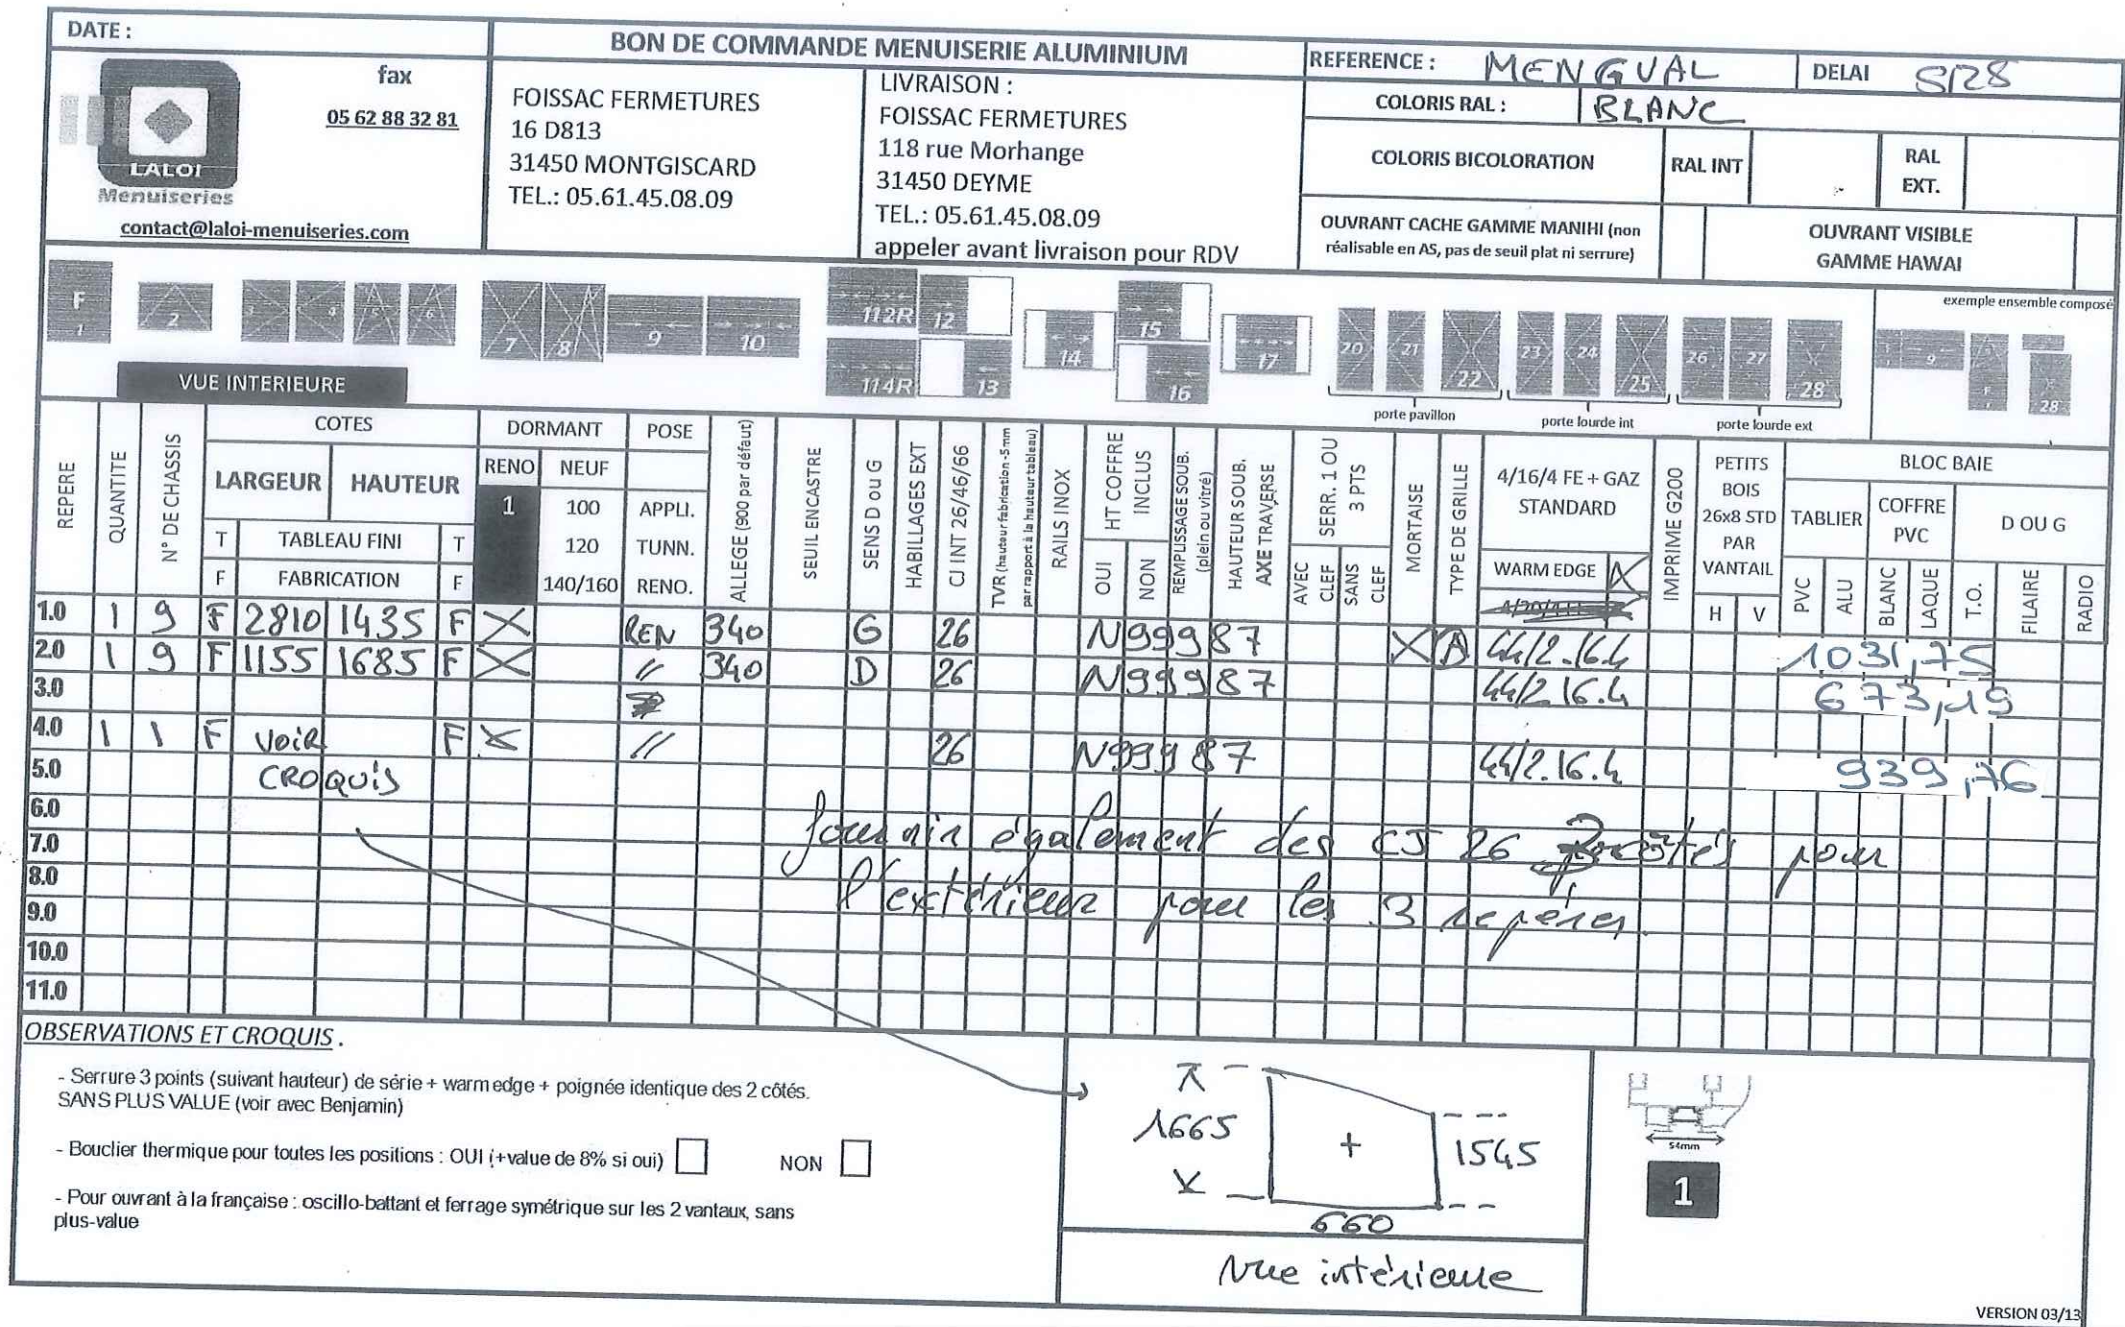 DATE :
BON DE COMMANDE MENUISERIE ALUMINIUM
REFERENCE : MENGUAL
DELAI S128
fax
05 62 88 32 81
LALOI
Menuiseries
contact@laloi-menuiseries.com
FOISSAC FERMETURES
16 D813
31450 MONTGISCARD
TEL.: 05.61.45.08.09
LIVRAISON :
FOISSAC FERMETURES
118 rue Morhange
31450 DEYME
TEL.: 05.61.45.08.09
appeler avant livraison pour RDV
COLORIS RAL : BLANC
COLORIS BICOLORATION RAL INT RAL EXT.
OUVRANT CACHE GAMME MANIHI (non
réalisable en AS, pas de seuil plat ni serrure)
OUVRANT VISIBLE
GAMME HAWAI
exemple ensemble composé
F 1 2 3 4 5 6 7 8 9 10 112R 114R 12 13 14 15 16 17 20 21 22 23 24 25 26 27 28 9 F 28
porte pavillon porte lourde int porte lourde ext
VUE INTERIEURE
REPERE
QUANTITE
N° DE CHASSIS
COTES
LARGEUR HAUTEUR
T TABLEAU FINI T
F FABRICATION F
DORMANT
RENO NEUF
1 100
120
140/160
POSE
APPLI.
TUNN.
RENO.
ALLEGE (900 par défaut)
SEUIL ENCASTRE
SENS D ou G
HABILLAGES EXT
CJ INT 26/46/66
TVR (hauteur fabrication -5mm
par rapport à la hauteur tableau)
RAILS INOX
HT COFFRE INCLUS
OUI NON
REMPLISSAGE SOUB.
(plein ou vitré)
HAUTEUR SOUB.
AXE TRAVERSE
SERR. 1 OU 3 PTS
AVEC CLEF
SANS CLEF
MORTAISE
TYPE DE GRILLE
4/16/4 FE + GAZ
STANDARD
WARM EDGE X
IMPRIME G200
PETITS
BOIS
26x8 STD
PAR
VANTAIL
H V
BLOC BAIE
TABLIER COFFRE PVC D OU G
PVC ALU BLANC LAQUE T.O. FILAIRE RADIO
1.0 1 9 F 2810 1435 F X REN 340 G 26 N99987 X A 44/2.16.4 1031,75
2.0 1 9 F 1155 1685 F X // 340 D 26 N99987 44/2.16.4 673,19
3.0
4.0 1 1 F VOIR F X // 26 N99987 44/2.16.4 939,76
5.0 CROQUIS
6.0
7.0 fournir également des CJ 26 côtés pour
8.0 l'extérieur pour les 3 repères
9.0
10.0
11.0
OBSERVATIONS ET CROQUIS .
- Serrure 3 points (suivant hauteur) de série + warm edge + poignée identique des 2 côtés.
SANS PLUS VALUE (voir avec Benjamin)
- Bouclier thermique pour toutes les positions : OUI (+value de 8% si oui) NON
- Pour ouvrant à la française : oscillo-battant et ferrage symétrique sur les 2 vantaux, sans
plus-value
1665
+
1545
660
Vue intérieure
54mm
1
VERSION 03/13